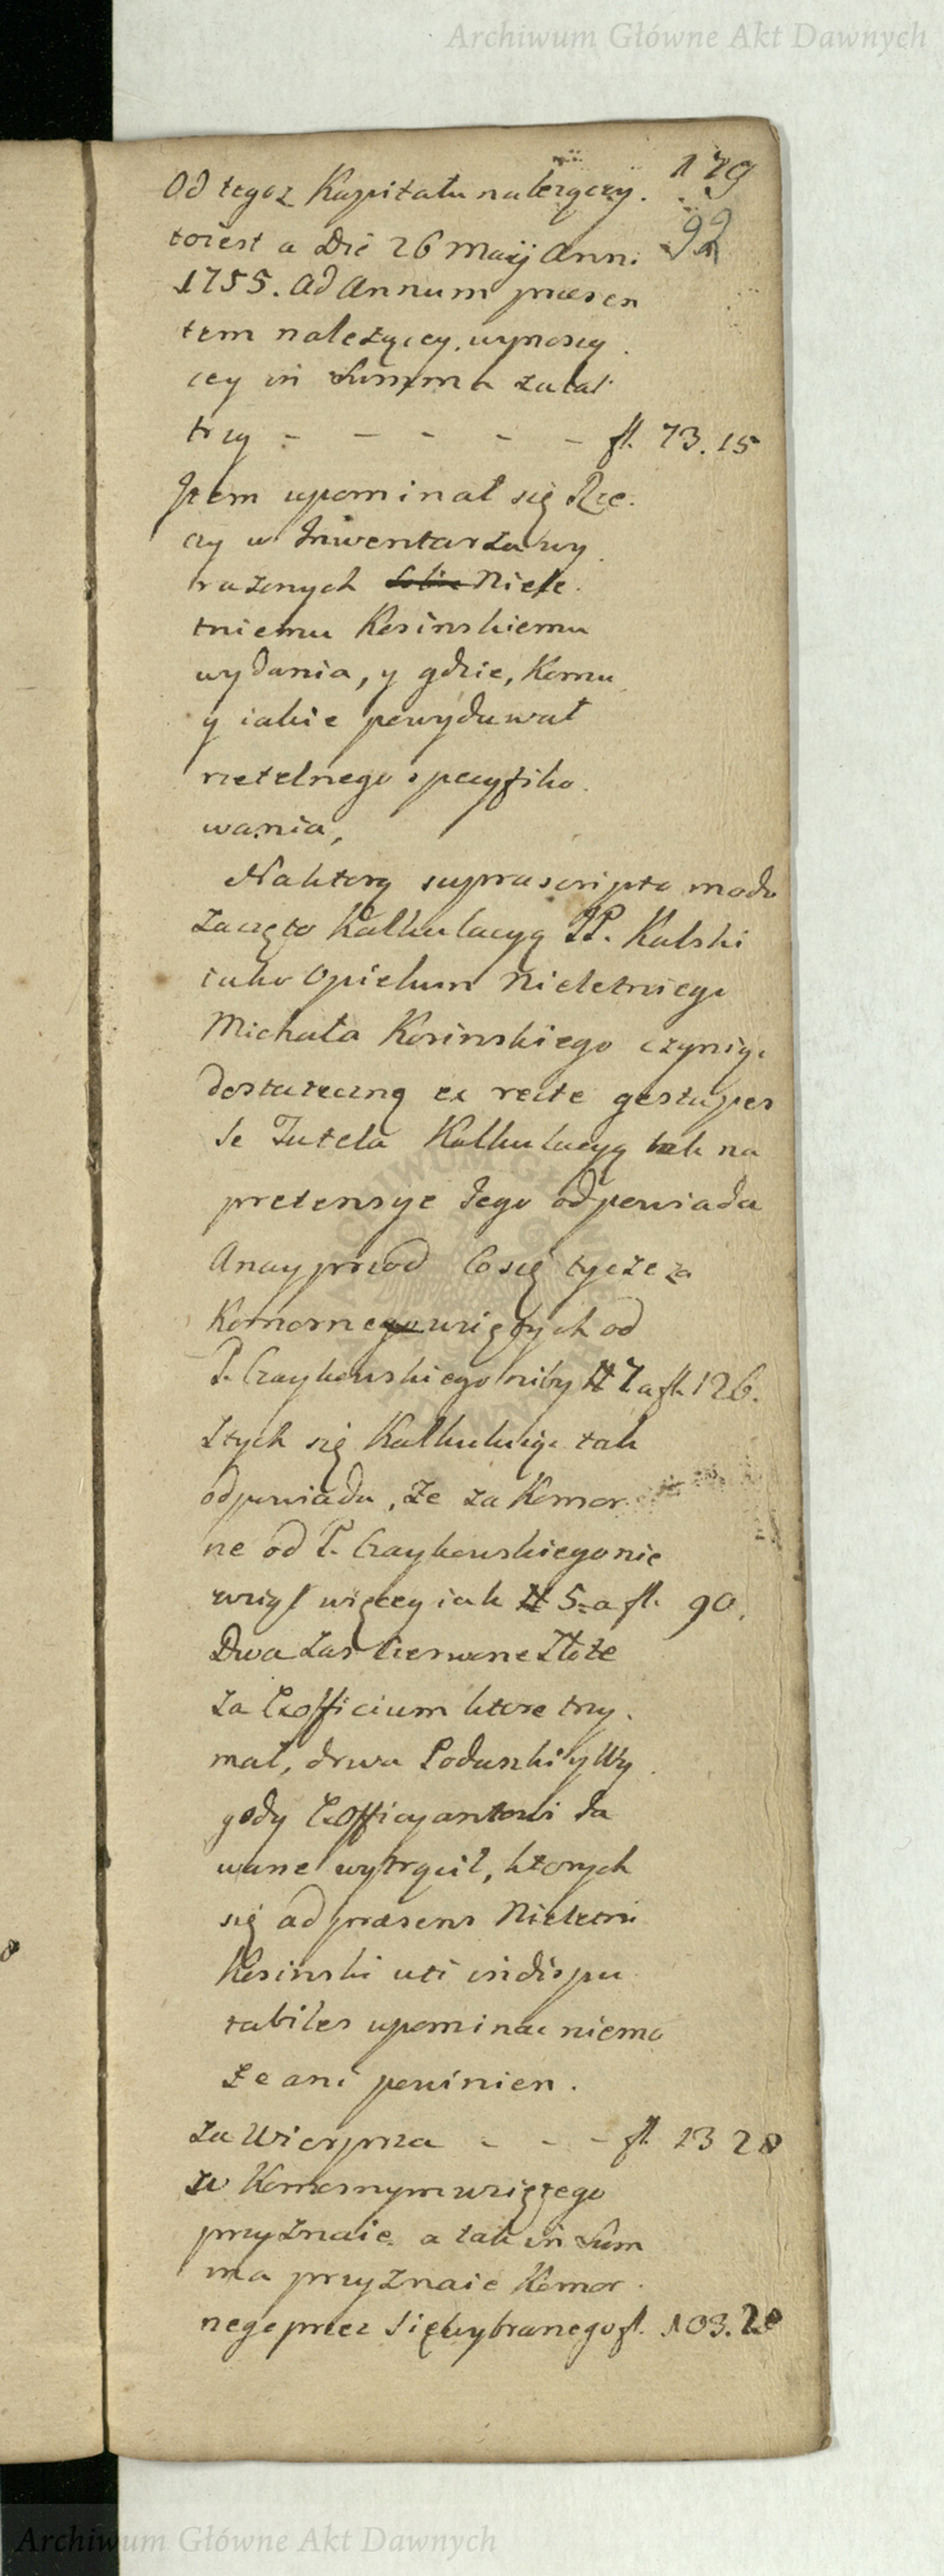 Archiwum Główne Akt Dawnych
179
92
Od tegoz Kapitału nalezący.
toiest a Die 26 Maij Anni
1755. Ad Annum præsen
tem należącey, wynoszą
cey in Summa za lat
trzy - - - - - fl. 73.15
Item upominał się Rze.
czy w Inwentarzu wy
rażonych Niele.
tniemu Kosinskiemu
wydania, y gdzie, Komu
y iakie powyduwał
rzetelnego specyfiko.
wania,
Naktorą suprascripto modo
zaczęto Kalkulacyą JP. Kulski
iako Opiekun Nieletniego
Michała Kosinskiego czyniąc
dostateczną ex recte gesta per
se Tutela Kalkulacyą tak na
pretensye Jego odpowiada
Anayprzod Co się tycze za
Komorne wziętych od
P. Czaykowskiego niby # 7 a fl. 126.
Ztych się Kalkuluiąc tak
odpowiada, Ze za Komor
ne od P. Czaykowskiego nie
wziął więcey iak # 5 a fl. 90.
Dwa zas Czerwone Złote
za Exofficium ktore trzy.
mał, drwa Poduszki y Wy
gody Exofficyantowi da
wane wytrącił, ktorych
się ad præsens Nieletni
Kosinski uti indispu
tabiles upominac niemo
że ani powinien.
Za Wieprza - - - fl. 13 28
w Komornym wziętego
przyznaie. a tak in Sum
ma przyznaie Komor.
nego przez Się wybranego fl. 103.28
Archiwum Główne Akt Dawnych